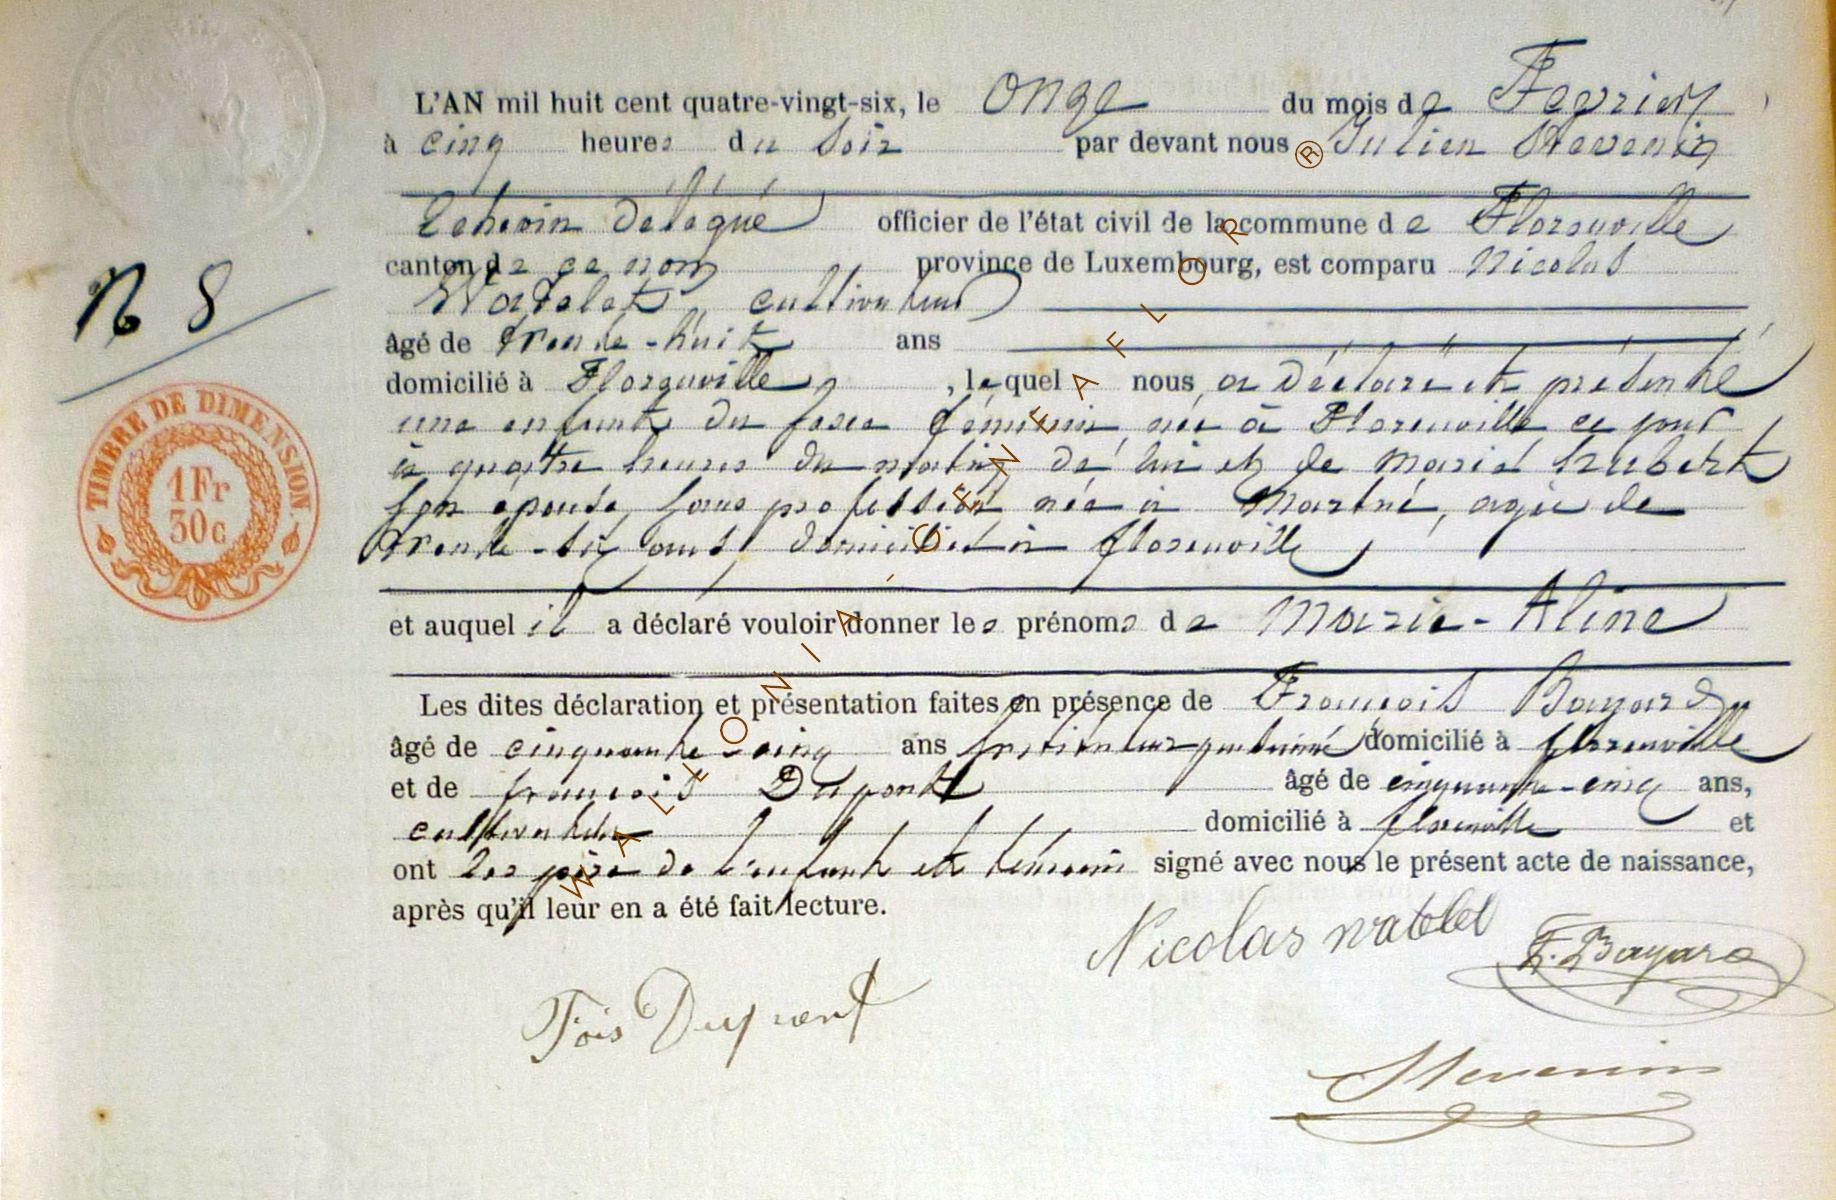 L'AN mil huit cent quatre-vingt-six, le onze du mois de Fevrier
à cinq heures du soir par devant nous Julien Stevenin
Echevin délégué officier de l'état civil de la commune de Florenville
canton de ce nom province de Luxembourg, est comparu Nicolas
Watelet, cultivateur
âgé de trente-huit ans
domicilié à Florenville, lequel nous a déclaré et présenté
une enfant du sexe féminin, née à Florenville ce jour
à quatre heures du matin de lui et de Marie Hubert
son épouse, sans profession née à Martué, agée de
trente-six ans, domiciliés à florenville
et auquel il a déclaré vouloir donner les prénoms de Marie-Aline
Les dites déclaration et présentation faites en présence de François Bayard
âgé de cinquante-cinq ans instituteur pensionné domicilié à florenville
et de françois Dupont âgé de cinquante-cinq ans,
cultivateur domicilié à florenville et
ont les père de l'enfant et témoins signé avec nous le présent acte de naissance,
après qu'il leur en a été fait lecture.
Nicolas watelet F. Bayard
Fois Dupont
Stevenin
N 8
TIMBRE DE DIMENSION.
1 Fr
30 c
WALLONIA - GENEAFLOR ®